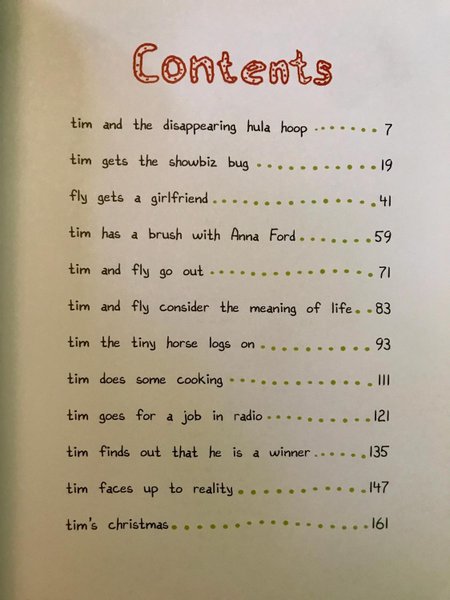 Contents
tim and the disappearing hula hoop ....... 7
tim gets the showbiz bug ............ 19
fly gets a girlfriend ................ 41
tim has a brush with Anna Ford ....... 59
tim and fly go out ................ 71
tim and fly consider the meaning of life .. 83
tim the tiny horse logs on ........... 93
tim does some cooking .............. 111
tim goes for a job in radio .......... 121
tim finds out that he is a winner ...... 135
tim faces up to reality ............. 147
tim's christmas .................. 161